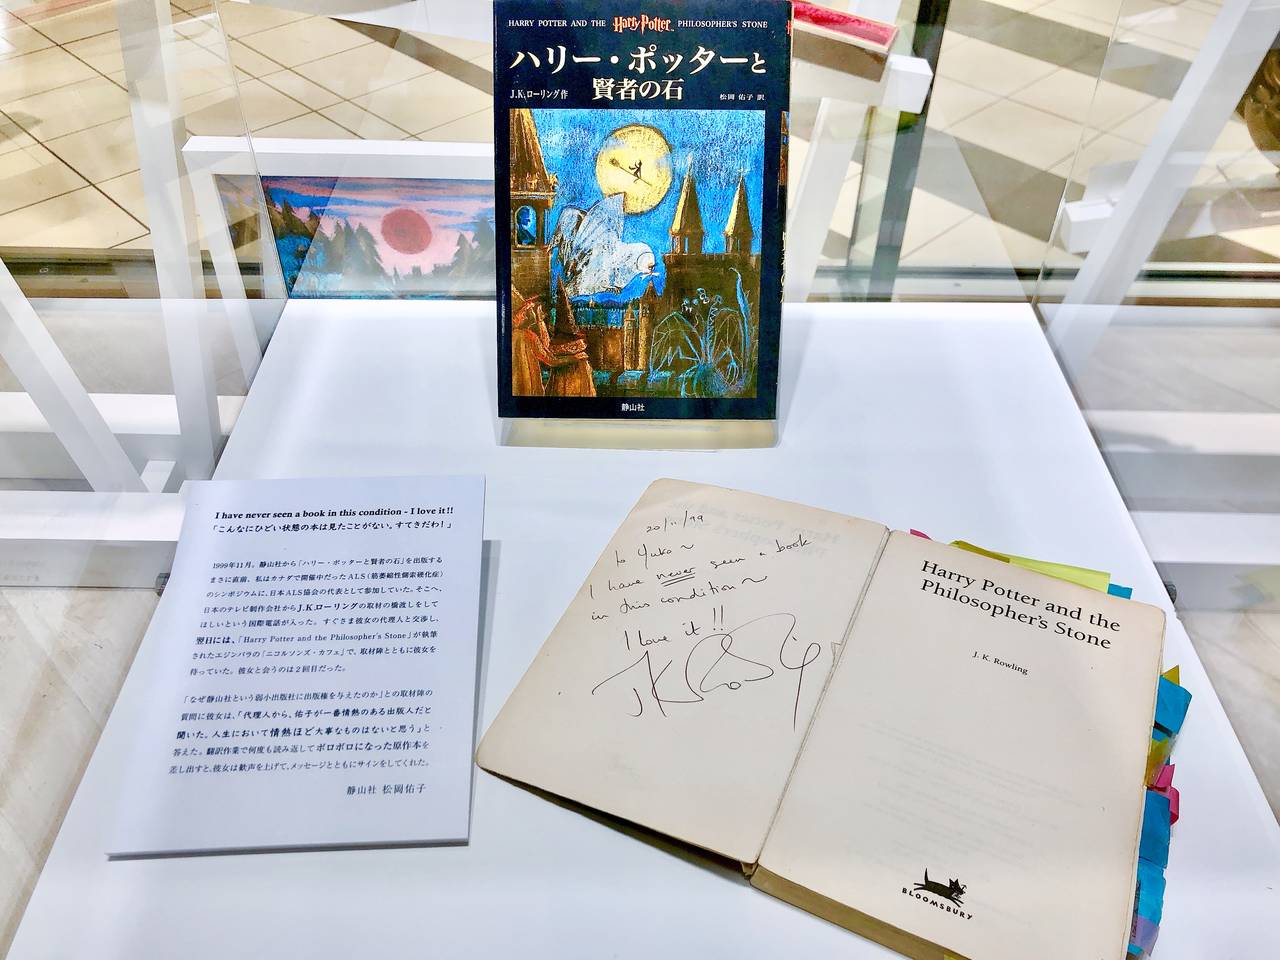 HARRY POTTER AND THE Harry Potter PHILOSOPHER'S STONE
ハリー・ポッターと
賢者の石
J.K.ローリング作 松岡 佑子 訳
静山社
I have never seen a book in this condition - I love it!!
「こんなにひどい状態の本は見たことがない。すてきだわ！」
1999年11月。静山社から「ハリー・ポッターと賢者の石」を出版する
まさに直前、私はカナダで開催中だったALS（筋萎縮性側索硬化症）
のシンポジウムに、日本ALS協会の代表として参加していた。そこへ、
日本のテレビ制作会社からJ.K.ローリングの取材の橋渡しをして
ほしいという国際電話が入った。すぐさま彼女の代理人と交渉し、
翌日には、「Harry Potter and the Philosopher's Stone」が執筆
されたエジンバラの「ニコルソンズ・カフェ」で、取材陣とともに彼女を
待っていた。彼女と会うのは2回目だった。
「なぜ静山社という弱小出版社に出版権を与えたのか」との取材陣の
質問に彼女は、「代理人から、佑子が一番情熱のある出版人だと
聞いた。人生において情熱ほど大事なものはないと思う」と
答えた。翻訳作業で何度も読み返してボロボロになった原作本を
差し出すと、彼女は歓声を上げて、メッセージとともにサインをしてくれた。
静山社 松岡佑子
20/11/99
to Yuko~
I have never seen a book
in this condition~
I love it!!
JK Rowling
Harry Potter and the
Philosopher's Stone
J. K. Rowling
BLOOMSBURY